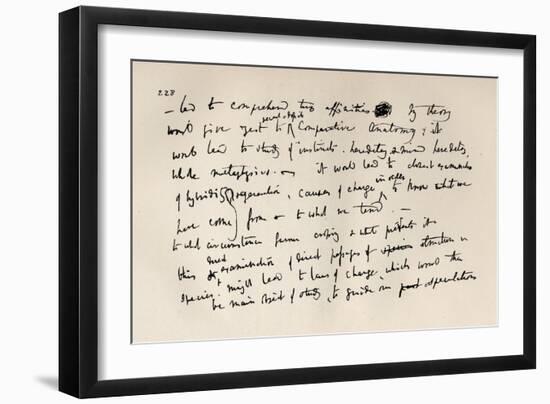 228
– led to comprehend true affinities. My theory
would give zest to recent & fossil Comparative Anatomy; it
would lead to study of instincts, heredity, & mind heredity,
whole metaphysics. – it would lead to closest examination
of hybridity & regeneration, causes of change in order to know what we
have come from & to what we tend. –
to what circumstances favour crossing & what prevents it –
this & direct examination of direct passages of structure in
species, might lead to laws of change, which would then
be main object of study, to guide our speculations